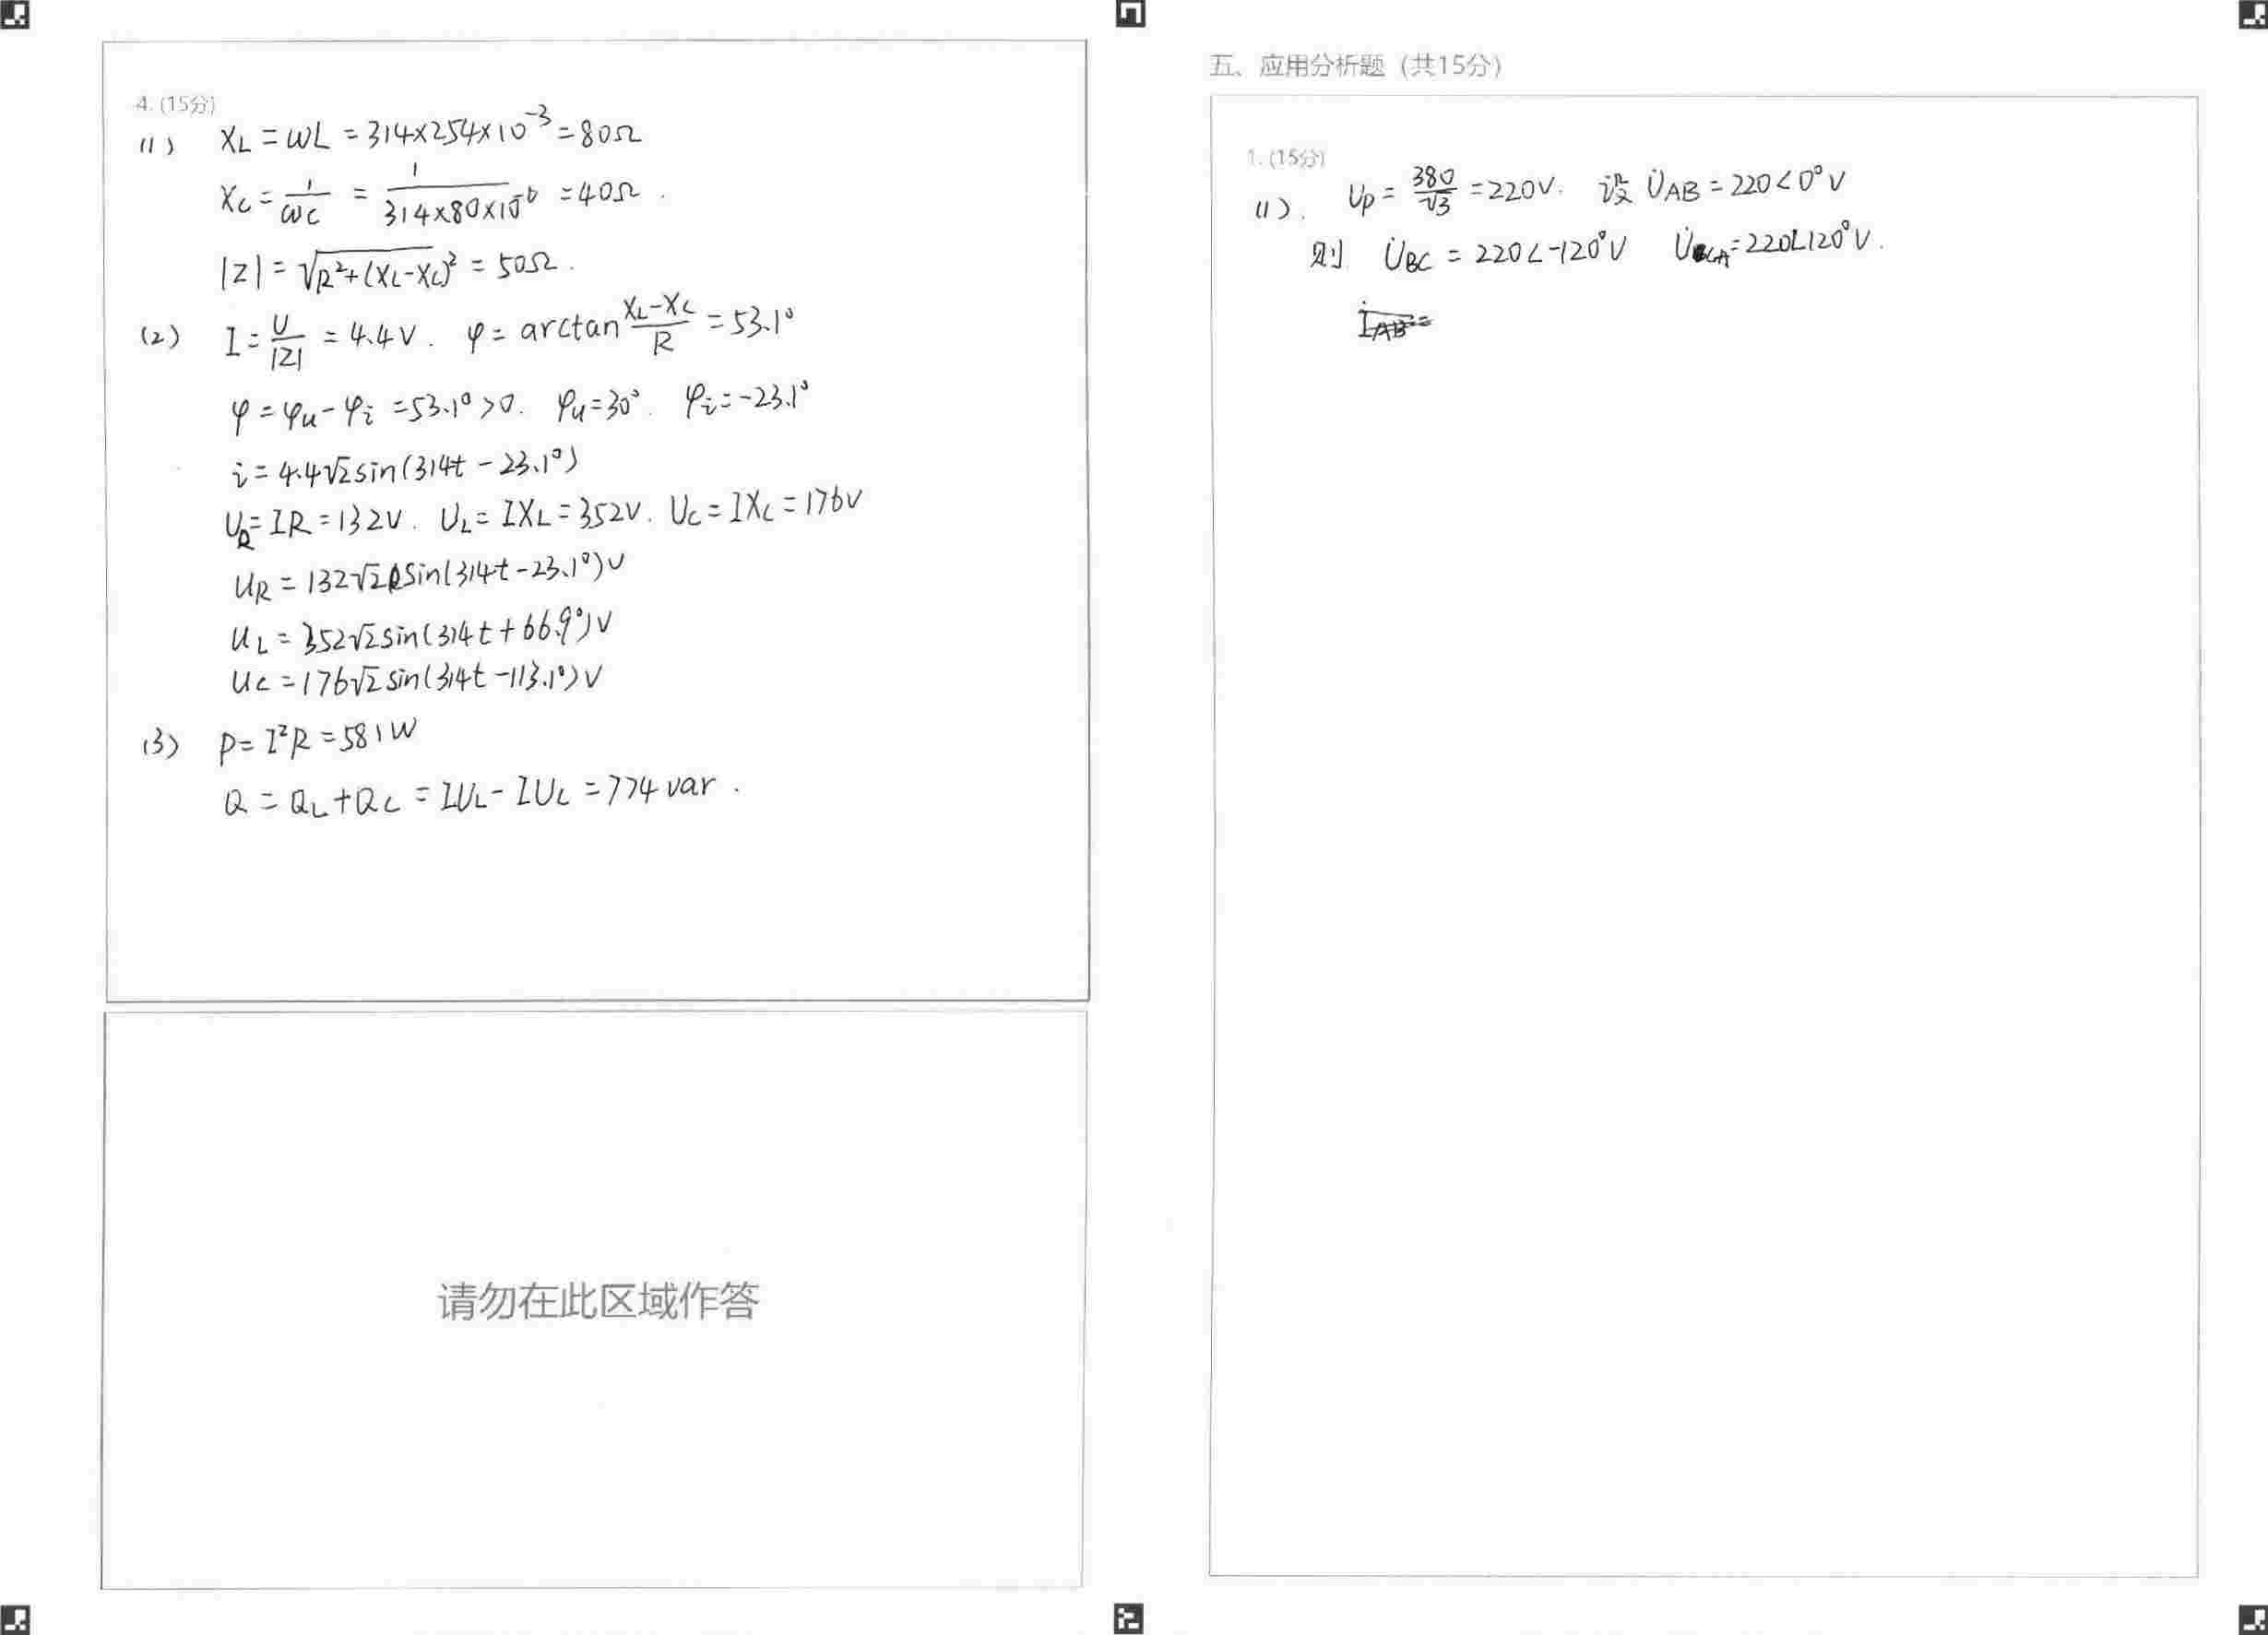 4. (15分)
(1) XL = ωL = 314×254×10⁻³ = 80Ω
XC = 1/ωC = 1/314×80×10⁻⁶ = 40Ω.
|Z| = √R²+(XL-XC)² = 50Ω.
(2) I = U/|Z| = 4.4V. φ = arctan XL-XC/R = 53.1°
φ = φu - φi = 53.1° > 0. φu = 30°. φi = -23.1°
i = 4.4√2 sin(314t - 23.1°)
UR = IR = 132V. UL = IXL = 352V. UC = IXC = 176V
uR = 132√2 sin(314t - 23.1°)V
uL = 352√2 sin(314t + 66.9°)V
uC = 176√2 sin(314t - 113.1°)V
(3) P = I²R = 581W
Q = QL + QC = IUL - IUC = 774 var.
请勿在此区域作答
五、应用分析题 (共15分)
1. (15分)
(1). Up = 380/√3 = 220V. 设 U̇AB = 220∠0°V
则 U̇BC = 220∠-120°V U̇CA = 220∠120°V.
İAB =